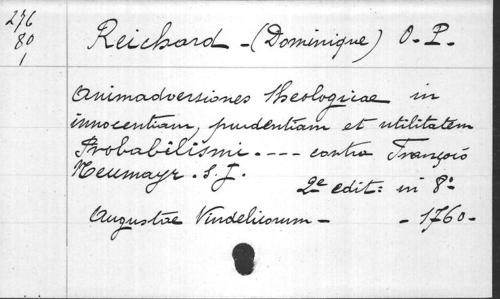 276
80
1
Reichard - (Dominique) O. P.-
Animadversiones theologicae in
innocentiam, prudentiam et utilitatem
Probabilismi. ---- contra François
Neumayr. S. J.
2e edit: in 8o
Augustae Vindelicorum - - 1760-